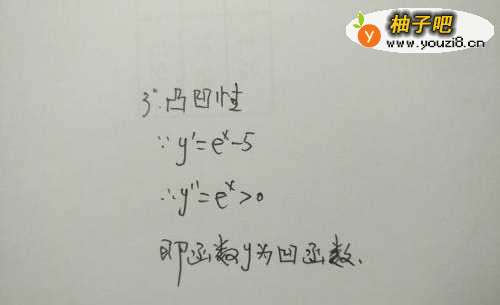 柚子吧
www.youzi8.cn
3°.凸凹性
∵y'=eˣ-5
∴y''=eˣ>0
即函数y为凹函数.